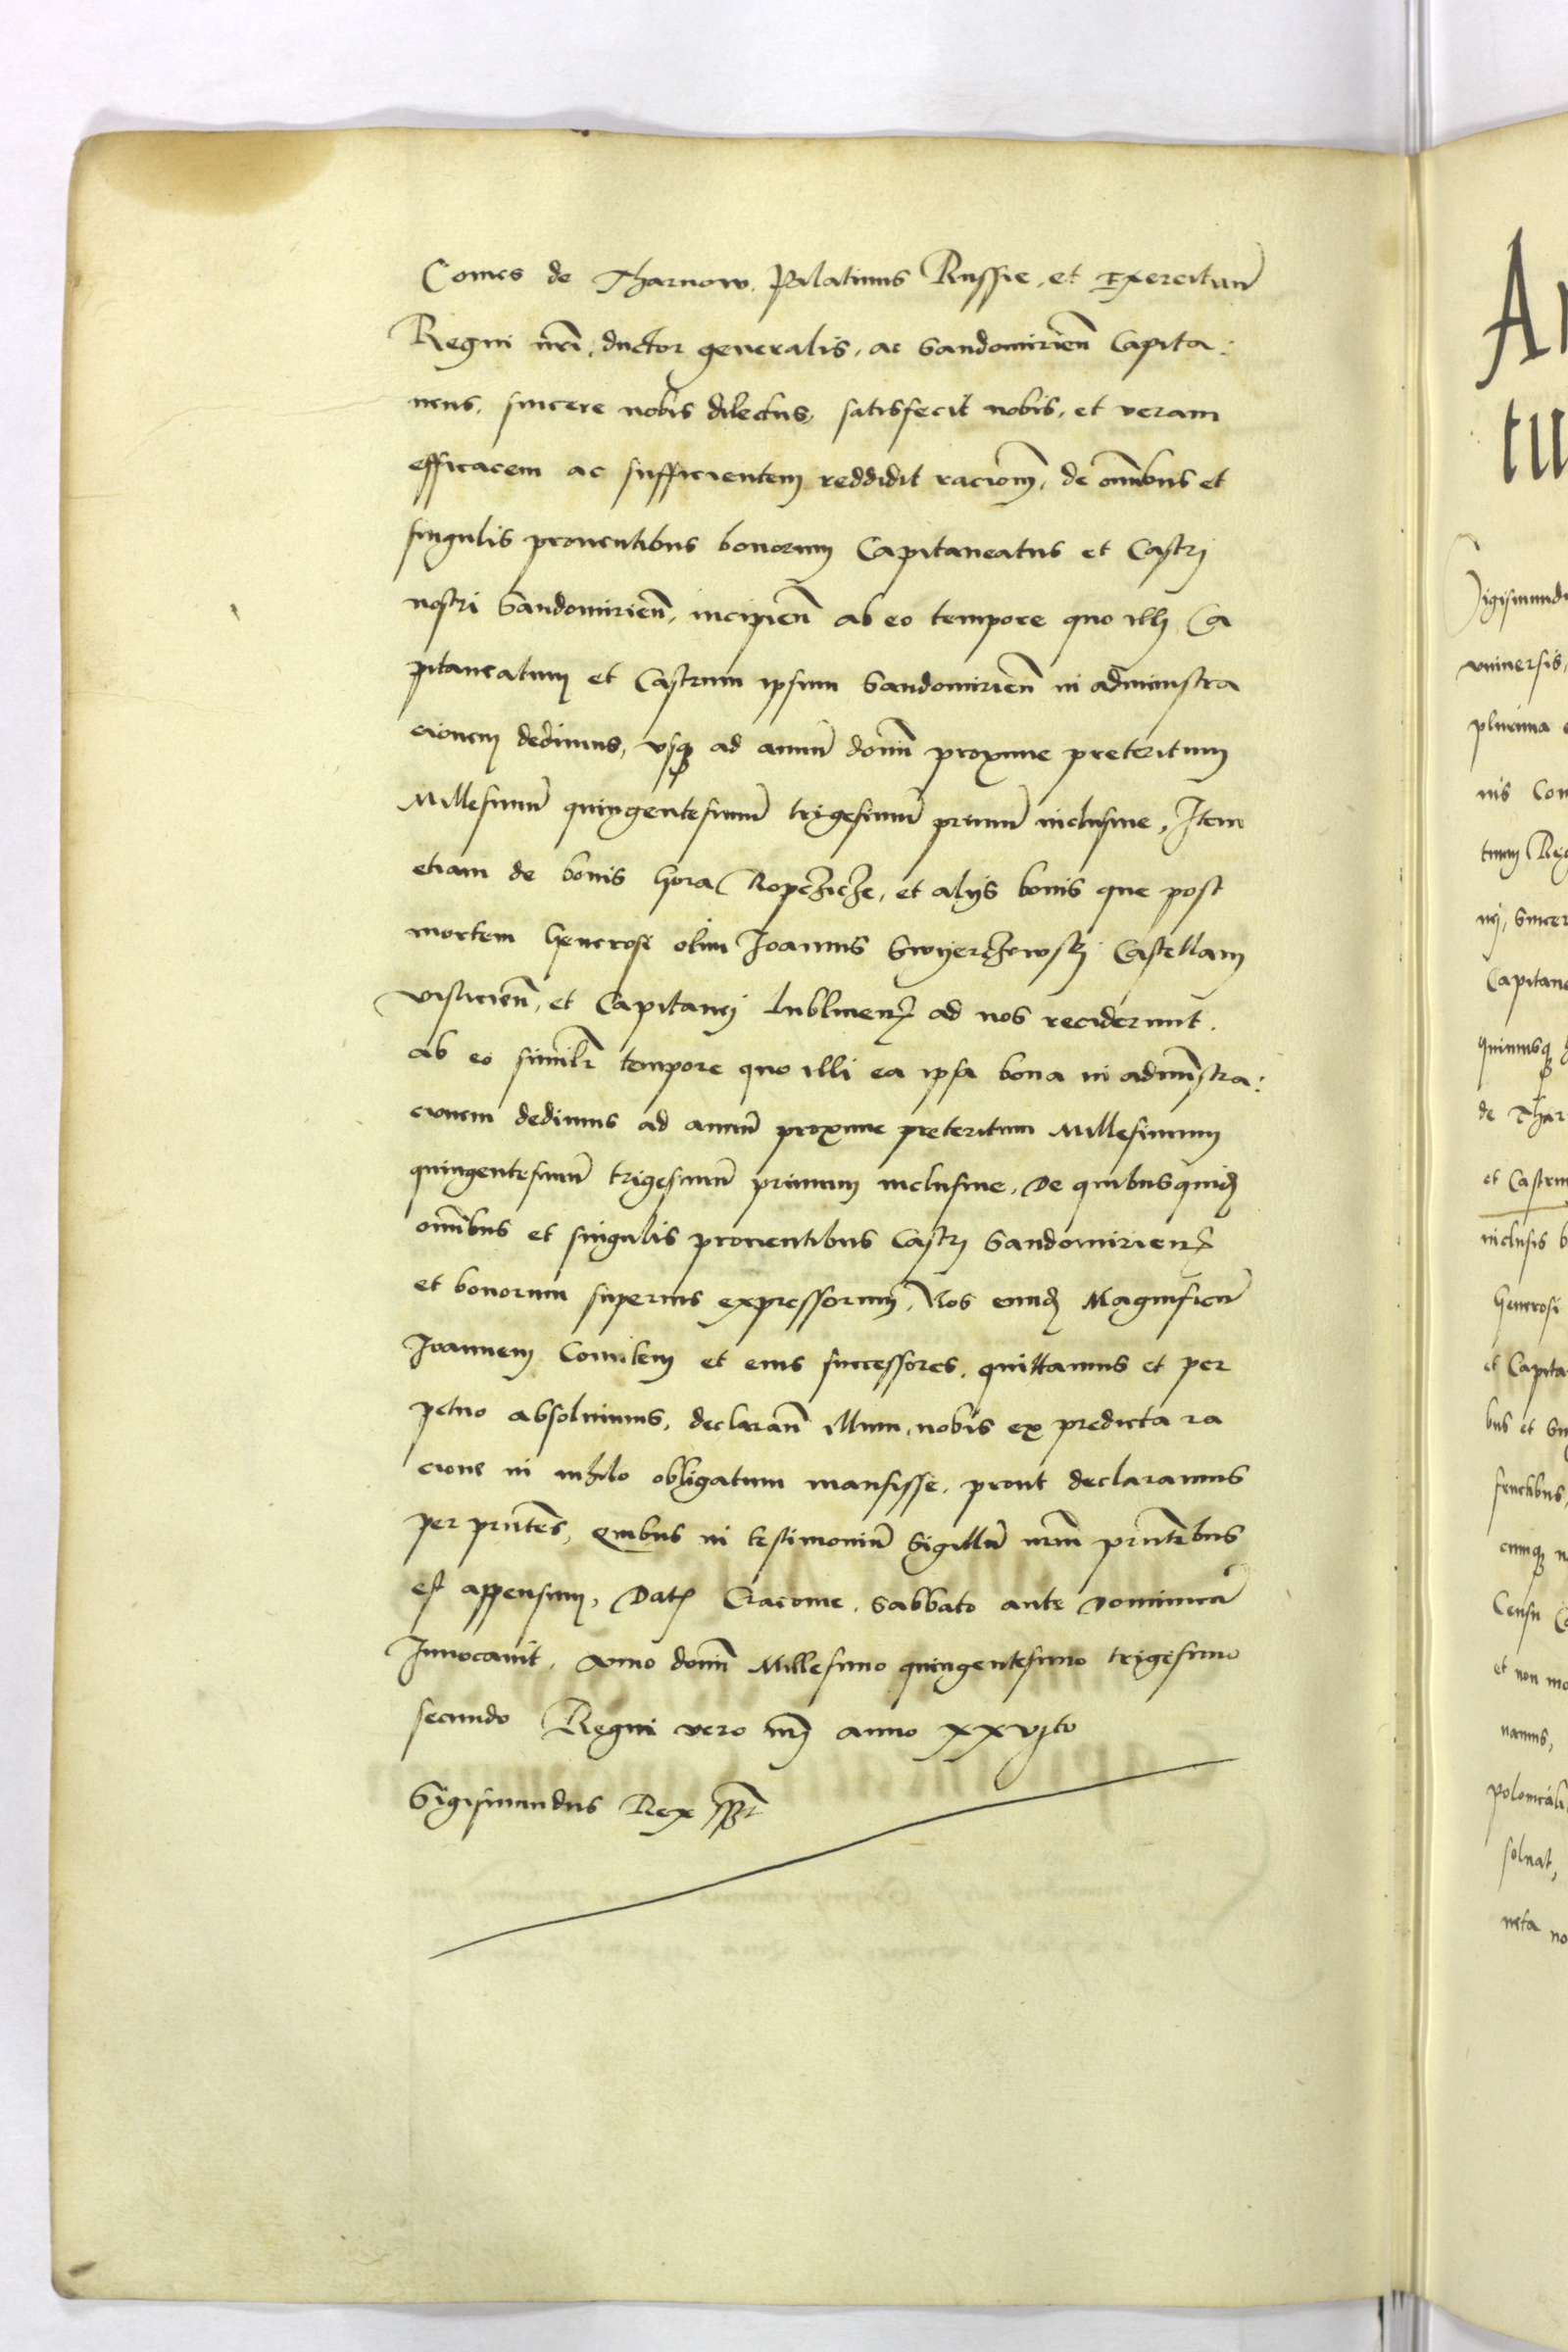 Comes de Tharnow. Palatinus Russie, et Exercituū
Regni nr̄i, ductor generalis, ac Sandomirien̄ Capita:
neus, sincere nobis dilectus, satisfecit nobis, et veram
efficacem ac sufficientem reddidit racionē, de om̄ibus et
singulis prouentibus bonorum Capitaneatus et Castri
nostri Sandomirien̄, incipien̄ ab eo tempore quo illi Ca
pitaneatum et Castrum ipsum Sandomirien̄ in administra
cionem dedimus, vsq ad annū domī proxime preteritum
Millesimū quingentesimū trigesimū primū inclusiue, Item
etiam de bonis hora Ropczicze, et alijs bonis que post
mortem Generosi olim Joannis Swyerczowsky Castellani
visliciēn, et Capitanei lublinen̄ ad nos reciderunt.
ab eo similr̄ tempore quo illi ea ipsa bona in admīstra:
cionem dedimus ad annū proxime preteritum Millesimum
quingentesimū trigesimū primum inclusiue, De quibusquid
om̄ibus et singulis prouentibus Castri Sandomirien̄
et bonorum superius expressorum, Nos eund Magnificū
Joannem Comitem et eius successores, quittamus et per
petuo absoluimus, declaran̄ illum, nobis ex predicta ra
cione in nihilo obligatum mansisse, prout declaramus
per pn̄tes, Quibus in testimoniū Sigillū nr̄m pn̄tibus
est appensum, Dat Cracouie, Sabbato ante dominicā
Inuocauit, Anno domī Millesimo quingentesimo trigesimo
secundo Regni vero nr̄i anno xxvjto
Sigismundus Rex sspt
Ar
tu
Sigismundu
vniuersis,
plurima
nis Con
tuum Reg
nj, sincer
Capitane
quinusq
de Thar
et Castrum
inclusis b
Generosi
et Capita
bus et Sin
fructibus,
cunq n
Censu
et non mo
namus,
polonicali
soluat,
neta no